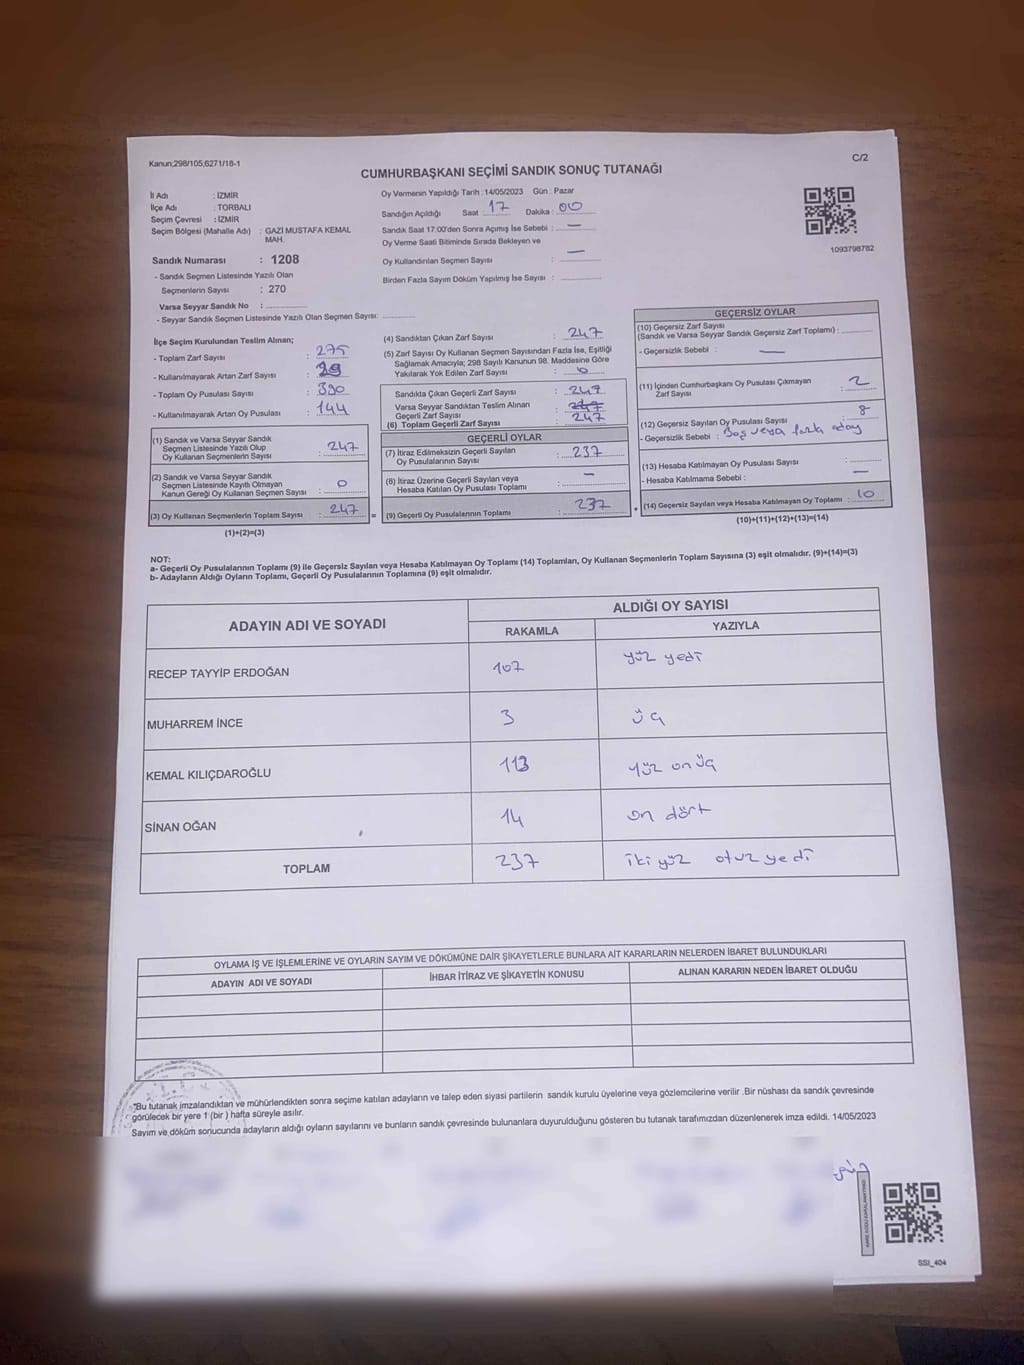 Kanun;298/105;6271/18-1
C/2
CUMHURBAŞKANI SEÇİMİ SANDIK SONUÇ TUTANAĞI
İl Adı : İZMİR
İlçe Adı : TORBALI
Seçim Çevresi : İZMİR
Seçim Bölgesi (Mahalle Adı) : GAZİ MUSTAFA KEMAL
MAH.
Sandık Numarası : 1208
- Sandık Seçmen Listesinde Yazılı Olan
Seçmenlerin Sayısı : 270
Varsa Seyyar Sandık No :
- Seyyar Sandık Seçmen Listesinde Yazılı Olan Seçmen Sayısı:
Oy Vermenin Yapıldığı Tarih :14/05/2023 Gün : Pazar
Sandığın Açıldığı Saat 17 Dakika : 00
Sandık Saat 17:00'den Sonra Açımış İse Sebebi : —
Oy Verme Saati Bitiminde Sırada Bekleyen ve
Oy Kullandırılan Seçmen Sayısı : —
Birden Fazla Sayım Döküm Yapılmış İse Sayısı :
1093798782
İlçe Seçim Kurulundan Teslim Alınan;
- Toplam Zarf Sayısı : 275
- Kullanılmayarak Artan Zarf Sayısı :
- Toplam Oy Pusulası Sayısı : 390
- Kullanılmayarak Artan Oy Pusulası : 144
(1) Sandık ve Varsa Seyyar Sandık
Seçmen Listesinde Yazılı Olup
Oy Kullanan Seçmenlerin Sayısı : 247
(2) Sandık ve Varsa Seyyar Sandık
Seçmen Listesinde Kayıtlı Olmayan
Kanun Gereği Oy Kullanan Seçmen Sayısı : 0
(3) Oy Kullanan Seçmenlerin Toplam Sayısı : 247 =
(1)+(2)=(3)
(4) Sandıktan Çıkan Zarf Sayısı : 247
(5) Zarf Sayısı Oy Kullanan Seçmen Sayısından Fazla İse, Eşitliği
Sağlamak Amacıyla; 298 Sayılı Kanunun 98. Maddesine Göre
Yakılarak Yok Edilen Zarf Sayısı : 0
Sandıkta Çıkan Geçerli Zarf Sayısı : 247
Varsa Seyyar Sandıktan Teslim Alınan
Geçerli Zarf Sayısı : 247
(6) Toplam Geçerli Zarf Sayısı : 247
GEÇERLİ OYLAR
(7) İtiraz Edilmeksizin Geçerli Sayılan
Oy Pusulalarının Sayısı : 237
(8) İtiraz Üzerine Geçerli Sayılan veya
Hesaba Katılan Oy Pusulası Toplamı : —
(9) Geçerli Oy Pusulalarının Toplamı : 237 +
GEÇERSİZ OYLAR
(10) Geçersiz Zarf Sayısı
(Sandık ve Varsa Seyyar Sandık Geçersiz Zarf Toplamı) :
- Geçersizlik Sebebi : —
(11) İçinden Cumhurbaşkanı Oy Pusulası Çıkmayan
Zarf Sayısı : 2
(12) Geçersiz Sayılan Oy Pusulası Sayısı : 8
- Geçersizlik Sebebi : Boş veya fazla aday
(13) Hesaba Katılmayan Oy Pusulası Sayısı :
- Hesaba Katılmama Sebebi : —
(14) Geçersiz Sayılan veya Hesaba Katılmayan Oy Toplamı : 10
(10)+(11)+(12)+(13)=(14)
NOT:
a- Geçerli Oy Pusulalarının Toplamı (9) ile Geçersiz Sayılan veya Hesaba Katılmayan Oy Toplamı (14) Toplamları, Oy Kullanan Seçmenlerin Toplam Sayısına (3) eşit olmalıdır. (9)+(14)=(3)
b- Adayların Aldığı Oyların Toplamı, Geçerli Oy Pusulalarının Toplamına (9) eşit olmalıdır.
ADAYIN ADI VE SOYADI
ALDIĞI OY SAYISI
RAKAMLA YAZIYLA
RECEP TAYYİP ERDOĞAN 107 yüz yedi
MUHARREM İNCE 3 üç
KEMAL KILIÇDAROĞLU 113 yüz on üç
SİNAN OĞAN 14 on dört
TOPLAM 237 iki yüz otuz yedi
OYLAMA İŞ VE İŞLEMLERİNE VE OYLARIN SAYIM VE DÖKÜMÜNE DAİR ŞİKAYETLERLE BUNLARA AİT KARARLARIN NELERDEN İBARET BULUNDUKLARI
ADAYIN ADI VE SOYADI İHBAR İTİRAZ VE ŞİKAYETİN KONUSU ALINAN KARARIN NEDEN İBARET OLDUĞU
*Bu tutanak imzalandıktan ve mühürlendikten sonra seçime katılan adayların ve talep eden siyasi partilerin sandık kurulu üyelerine veya gözlemcilerine verilir .Bir nüshası da sandık çevresinde
görülecek bir yere 1 (bir ) hafta süreyle asılır.
Sayım ve döküm sonucunda adayların aldığı oyların sayılarını ve bunların sandık çevresinde bulunanlara duyurulduğunu gösteren bu tutanak tarafımızdan düzenlenerek imza edildi. 14/05/2023
SSI_404